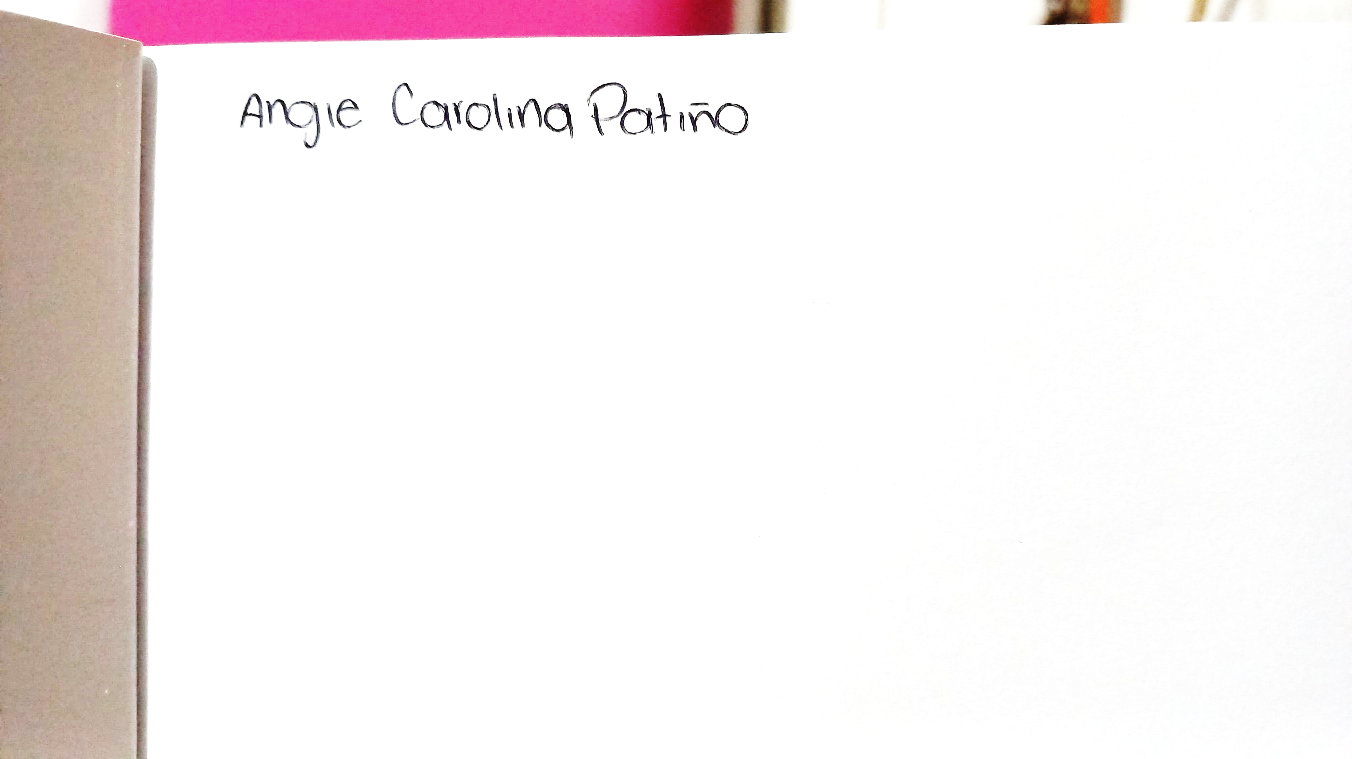 Angie Carolina Patiño